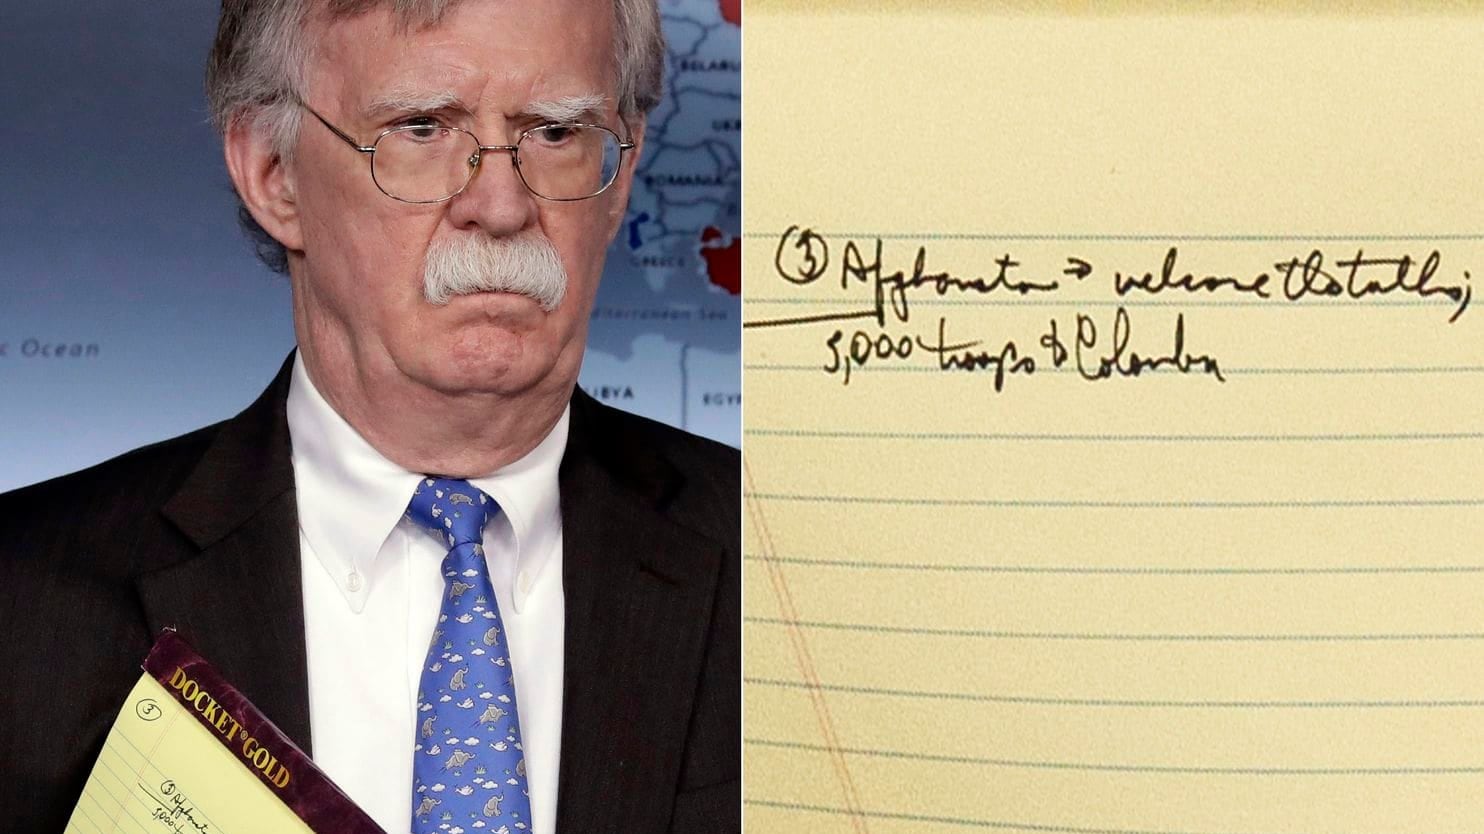 BELARU
UKR
ROMANIA
GREECE
diterranean Sea
c Ocean
IBYA
EGYP
DOCKET®GOLD
3
③ Afghanistan
5,000 t
③ Afghanistan → welcome the talks;
5,000 troops to Colombia